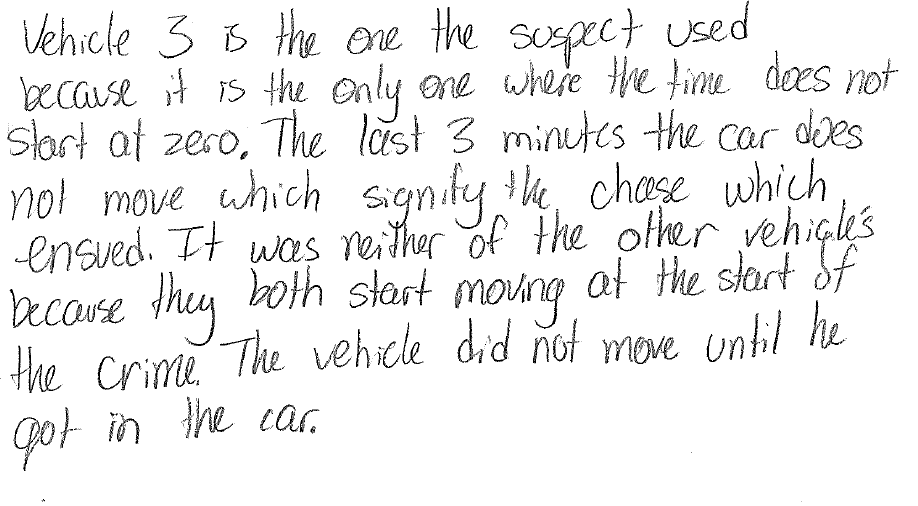 Vehicle 3 is the one the suspect used
because it is the only one where the time does not
start at zero. The last 3 minutes the car does
not move which signify the chase which
ensued. It was neither of the other vehicle's
because they both start moving at the start of
the crime. The vehicle did not move until he
got in the car.